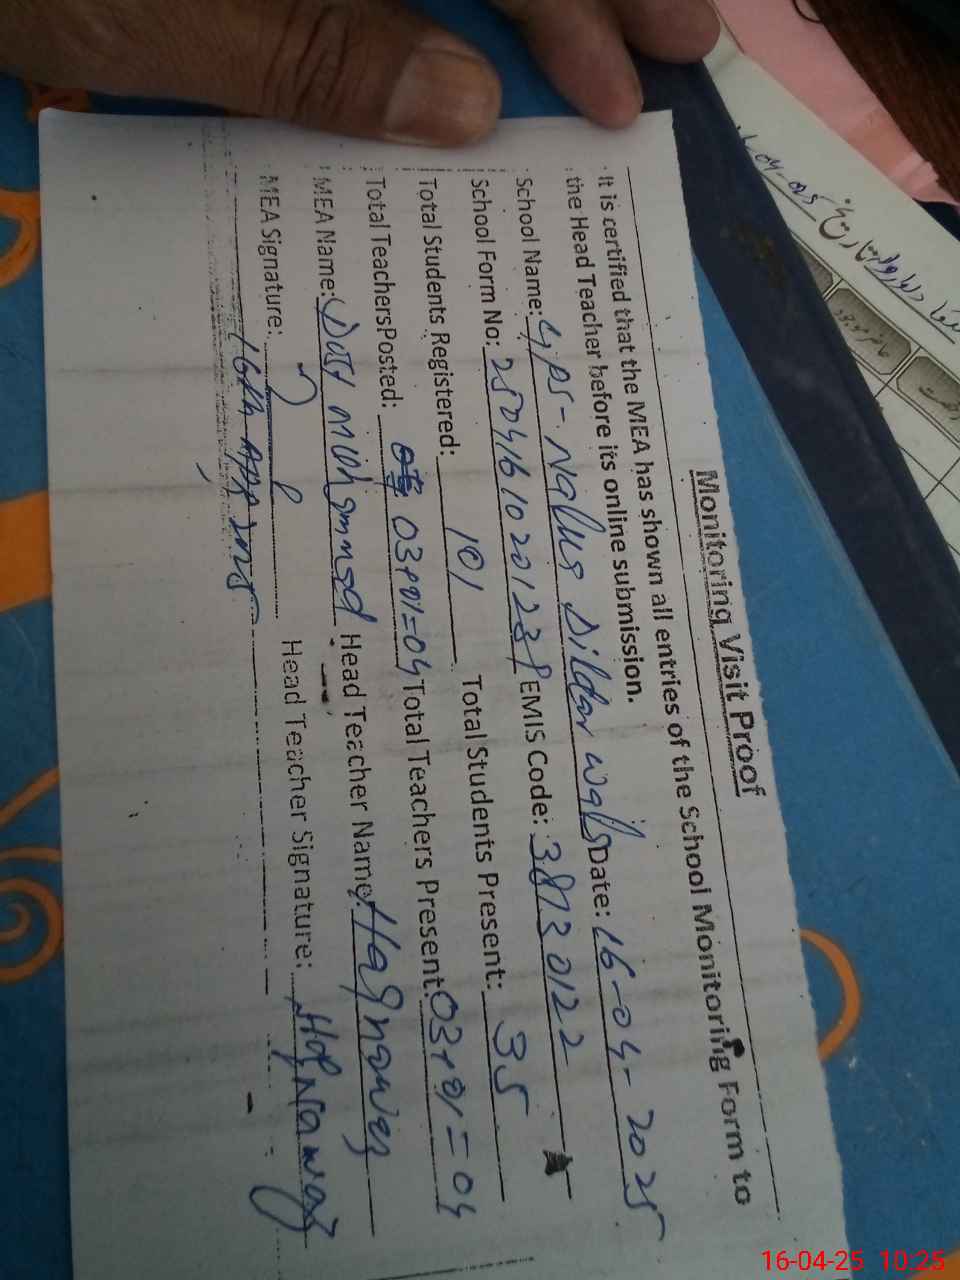 Monitoring Visit Proof
It is certified that the MEA has shown all entries of the School Monitoring Form to
the Head Teacher before its online submission.
School Name: GPS- Dildar Date: 16-04-2025
School Form No: EMIS Code: 38130122
Total Students Registered: 101 Total Students Present: 35
Total TeachersPosted: 03+01=04 Total Teachers Present: 03+01=04
MEA Name: Dost Muhammad Head Teacher Name: Haq nawaz
MEA Signature: Head Teacher Signature: Haq Nawaz
16th 2025
16-04-25 10:25